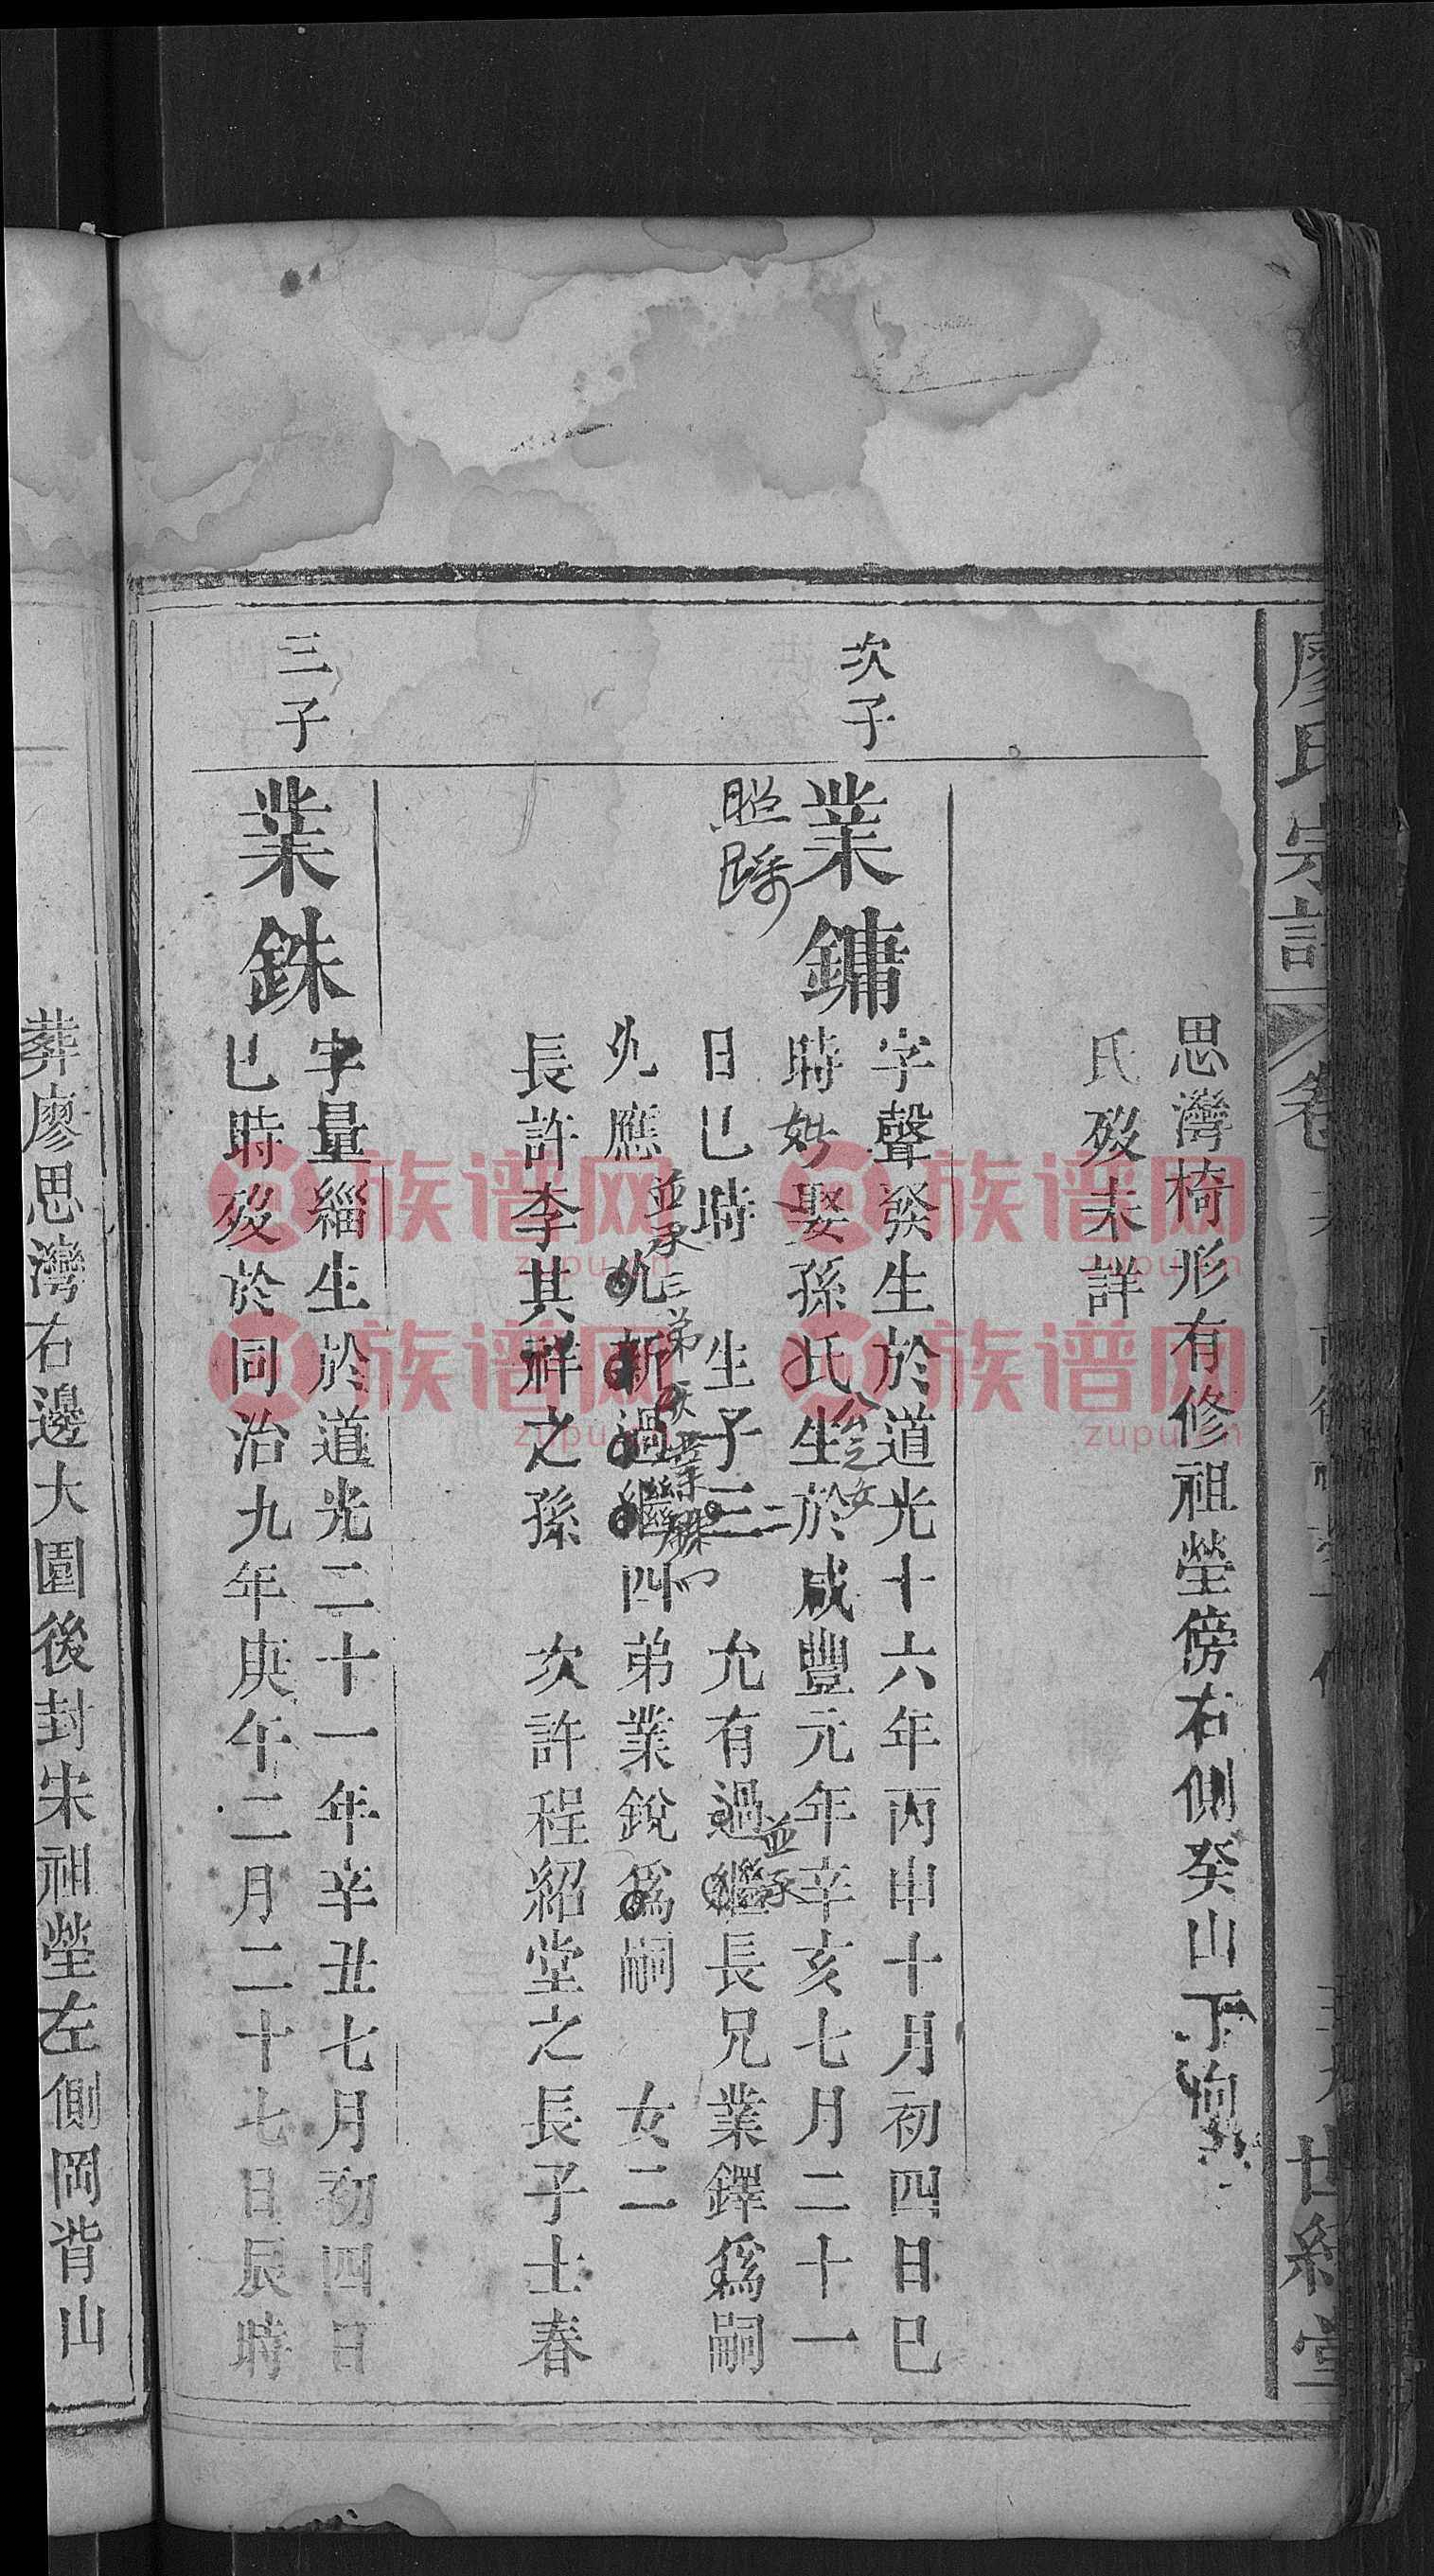 廖氏宗譜
卷
世綵堂
思灣椅形有修祖塋傍右側癸山丁向
氏歿未詳
次子
業鏞
字聲發生於道光十六年丙申十月初四日巳
時妣娶孫氏生於咸豐元年辛亥七月二十一
公之女
日巳時 生子三 允有過繼長兄業鐸爲嗣
二
並承
允應 允新過繼四弟業銳爲嗣 女二
並承三弟
業
長許李其祥之孫 次許程紹堂之長子士春
三子
業銖
字量緇生於道光二十一年辛丑七月初四日
巳時歿於同治九年庚午二月二十七日辰時
葬廖思灣右邊大園後封宋祖塋左側岡背山
族谱网
zupu.cn
族谱网
zupu.cn
族谱网
zupu.cn
族谱网
zupu.cn